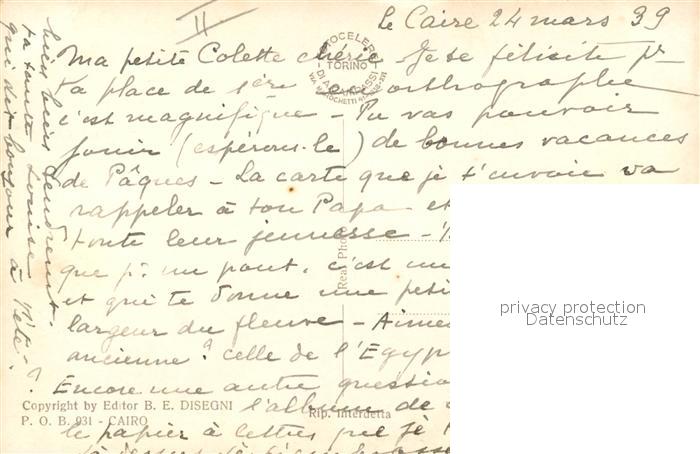 II
Le Caire 24 mars 39
Ma petite Colette chérie - Je te félicite pr
ta place de 1ère en orthographe
c'est magnifique - Tu vas pouvoir
jouir (espérons-le) de bonnes vacances
de Pâques - La carte que je t'envoie va
rappeler à ton Papa et
toute leur jeunesse -
que pr un pont, c'est un
et qui te donne une peti
largeur du fleuve - Aime
ancienne? celle de l'Egyp
Encore une autre questio
l'album de
le papier à lettres que je
bien tendrement.
ta tante Louise
qui dit bonjour à
FOTOCELERE
TORINO
DI A. CAMPASSI
Real Photo
privacy protection
Datenschutz
Copyright by Editor B. E. DISEGNI
P. O. B. 931 - CAIRO
Rip. Interdetta